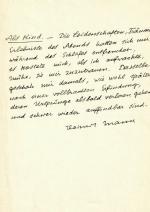 Als Kind. — Die Leidenschaften, Träume,
Erlebnisse des Abends hatten sich mir
während des Schlafes entfremdet,
es kostete mich, als ich aufwachte,
Mühe, sie mir zuzutrauen. Dasselbe
geschah mir damals, wie wohl später
nach einer vollbrachten Erfindung,
deren Ursprünge alsbald verloren gehen
und schwer wieder auffindbar sind.
Thomas Mann